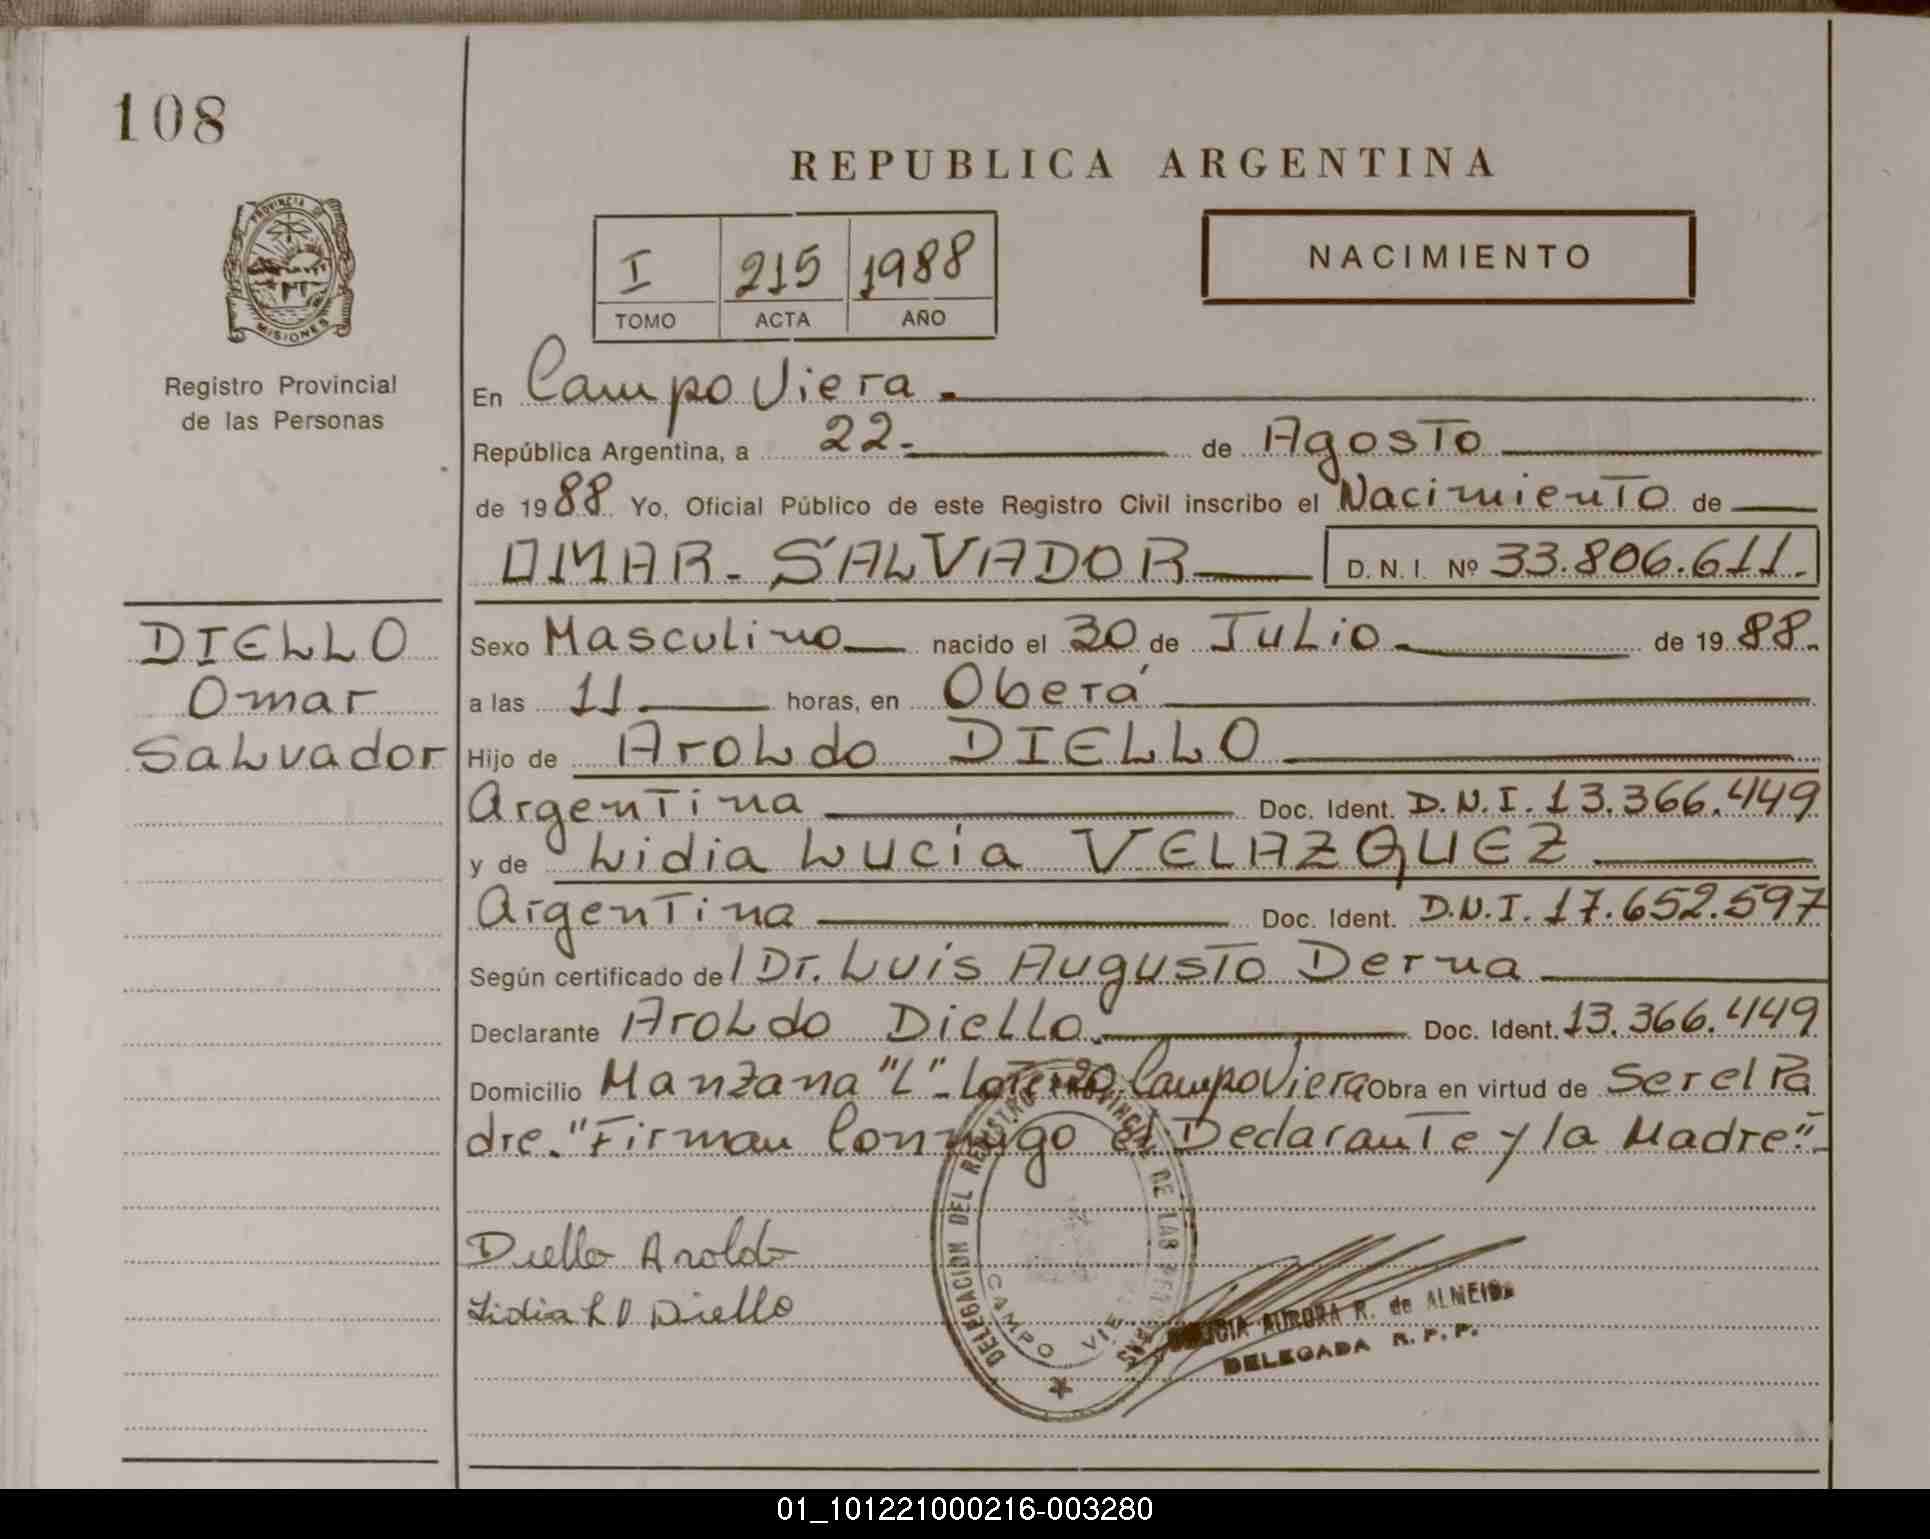 108
REPUBLICA ARGENTINA
PROVINCIA DE
MISIONES
Registro Provincial
de las Personas
I 215 1988
TOMO ACTA AÑO
NACIMIENTO
En Campo Viera.
República Argentina, a 22- de Agosto
de 1988 Yo, Oficial Público de este Registro Civil inscribo el Nacimiento de
OMAR- SALVADOR D. N. I. Nº 33.806.611.
DIELLO
Omar
Salvador
Sexo Masculino nacido el 30 de Julio de 1988.
a las 11 horas, en Oberá
Hijo de Aroldo DIELLO
Argentina Doc. Ident. D.N.I. 13.366.449
y de Lidia Lucía VELAZQUEZ
Argentina Doc. Ident. D.N.I. 17.652.597
Según certificado de l Dr. Luis Augusto Derna
Declarante Aroldo Diello. Doc. Ident. 13.366.449
Domicilio Manzana "L"- Lote 20 Campo Viera Obra en virtud de Ser el Pa
dre. "Firman Conmigo el Declarante y la Madre".-
Diello Aroldo
Lidia L V Diello
DELEGACION DEL REGISTRO PROVINCIAL DE LAS PERSONAS
CAMPO VIERA
AURORA R. de ALMEIDA
DELEGADA R. P. P.
01_101221000216-003280